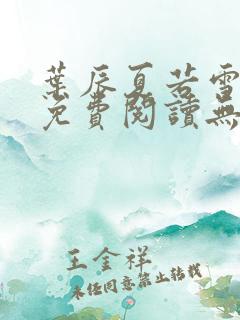 葉辰夏若雪
免費閱讀無
王金祥
未經同意禁止轉載